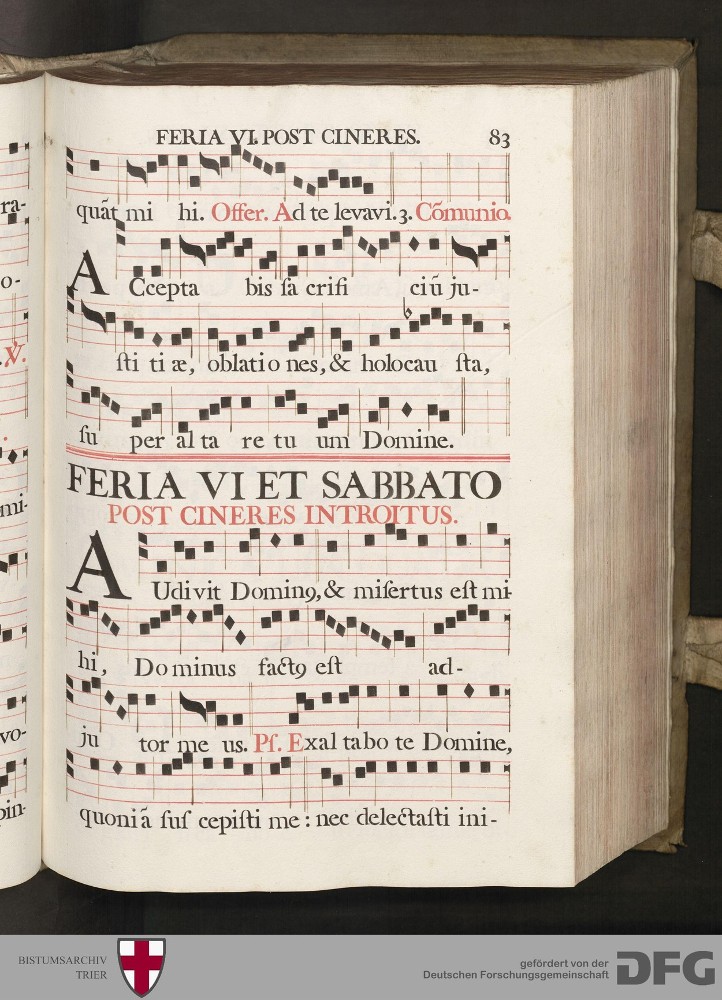 FERIA VI. POST CINERES. 83
ra-
quãt mi hi. Offer. Ad te levavi. 3. Cõmunio.
o-
ACcepta bis ſa crifi ciū ju-
℣.
ſti ti æ, oblatio nes, & holocau ſta,
ſu per al ta re tu um Domine.
FERIA VI ET SABBATO
POST CINERES INTROITUS.
mi-
AUdivit Dominꝯ, & miſertus eſt mi-
hi, Dominus factꝯ eſt ad-
vo-
ju tor me us. Pſ. Exal tabo te Domine,
pin-
quoniã ſuſ cepiſti me : nec delectaſti ini-
BISTUMSARCHIV
TRIER
gefördert von der
Deutschen Forschungsgemeinschaft
DFG